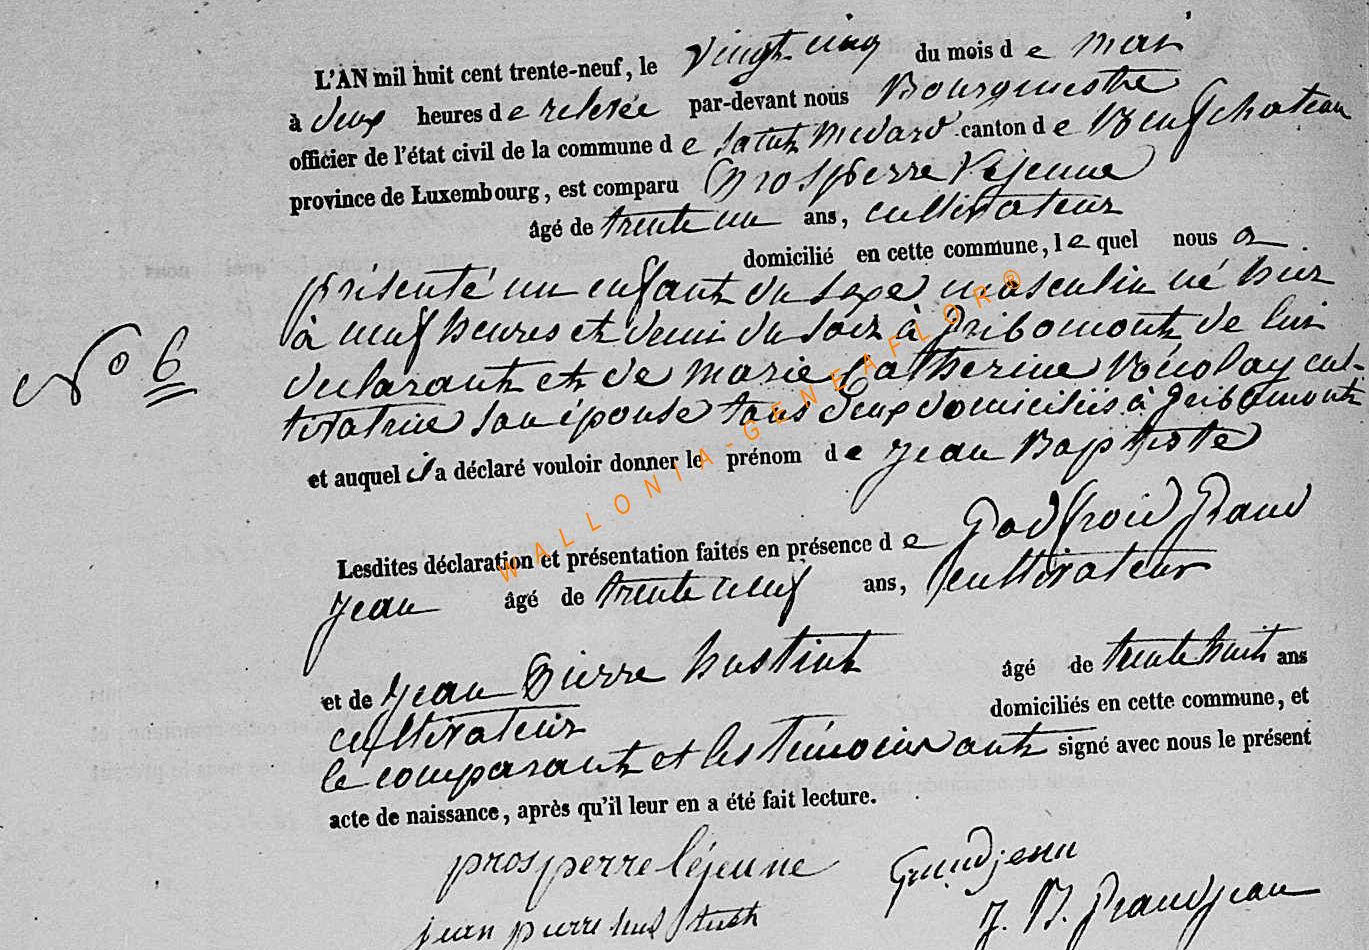 L'AN mil huit cent trente-neuf, le vingt cinq du mois de mai
à deux heures de relevée par-devant nous Bourgmestre
officier de l'état civil de la commune de saint medard canton de Neufchateau
province de Luxembourg, est comparu Prosperre Lejeune
âgé de trente un ans, cultivateur
domicilié en cette commune, lequel nous a
présenté un enfant du sexe masculin né hier
à neuf heures et demi du soir à Gribomont de lui
N° 6
declarant et de marie Catherine Nicolay cul-
tivatrice son épouse tous deux domiciliés à Gribomont
et auquel il a déclaré vouloir donner le prénom de Jean Baptiste
WALLONIA-GENEAFLOR®
Lesdites déclaration et présentation faites en présence de Godfroid Grand
Jean âgé de trente neuf ans, cultivateur
et de Jean Pierre hustin âgé de trente huit ans
cultivateur domiciliés en cette commune, et
le comparant et les témoins ont signé avec nous le présent
acte de naissance, après qu'il leur en a été fait lecture.
prosperre lejeune Grandjean
jean pierre J. B. Grandjean